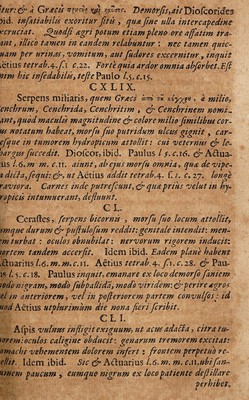 Demorsis, ait Dioscorides
ibid. insatiabilis exoritur sitis, qua sine ulla intercapedine
excruciat. Quodsi agri potum etiam pleno ore affatim tra-
ant, illico tamen in eandem relabuntur: nec tamen quic-
quam per urinas, vomitum, aut sudores excernitur, inquit
Aetius tetrab.4. s.1. c.22. Forte quia ardor omnia absorbet. Est
hic insedabilis, teste Paulo l.5. c.15.
CXLIX.
Serpens miliaris, quem Graeci milio,
Cenchrum, Cenchridia, Cenchritim, & Cenchrinem nomi-
ant, quod maculis magnitudine & colore milio similibus cor-
pus notatum habeat, morsu suo putridum ulcus gignit, car-
nesque in tumorem hydropicum attollit: cui veternus & le-
thargus succedit. Dioscor. ibid. Paulus l.5. c.16. & Actua-
rius l.6. m.m. c.11. aiunt, ab ejus morsu omnia, qua de vipe-
ra dicta, sequi: &, ut Aëtius addit tetrab.4. s.1. c.27. longe
graviora. Carnes inde putrescunt, & qua prius velut in hy-
dropicis intumerant, destuunt.
CL.
Cerastes, serpens bicornis, morsu suo locum attollit,
eumque durum & pustulosum reddit: genitale intendit: men-
tem turbat: oculos obnubilat: nervorum rigorem inducit:
mortem tandem accersit. Idem ibid. Eadem planè habent
Actuarius l.6. m.m. c.11. Aëtius tetrab.4. s.1. c.28. & Pau-
lus l.5. c.18. Paulus inquit, emanare ex loco demorso saniem
modo nigram, modo subpallida, modò viridem: & perire agros
vel in anteriorem, vel in posteriorem partem convulsos: id
quod Aëtius utplurimùm die nona fieri scribit.
CLI.
Aspis vulnus infligit exiguum, ut acu adacta, citra tu-
morem: oculos caligine obducit: genarum tremorem excitat:
stomachi vehementem dolorem infert: frontem perpetuò re-
Idem ibid. Sic & Actuarius l.6. m.m. c.11. ubi san-
guinem paucum, eumque nigrum ex loco patiente destillare
perhibet.